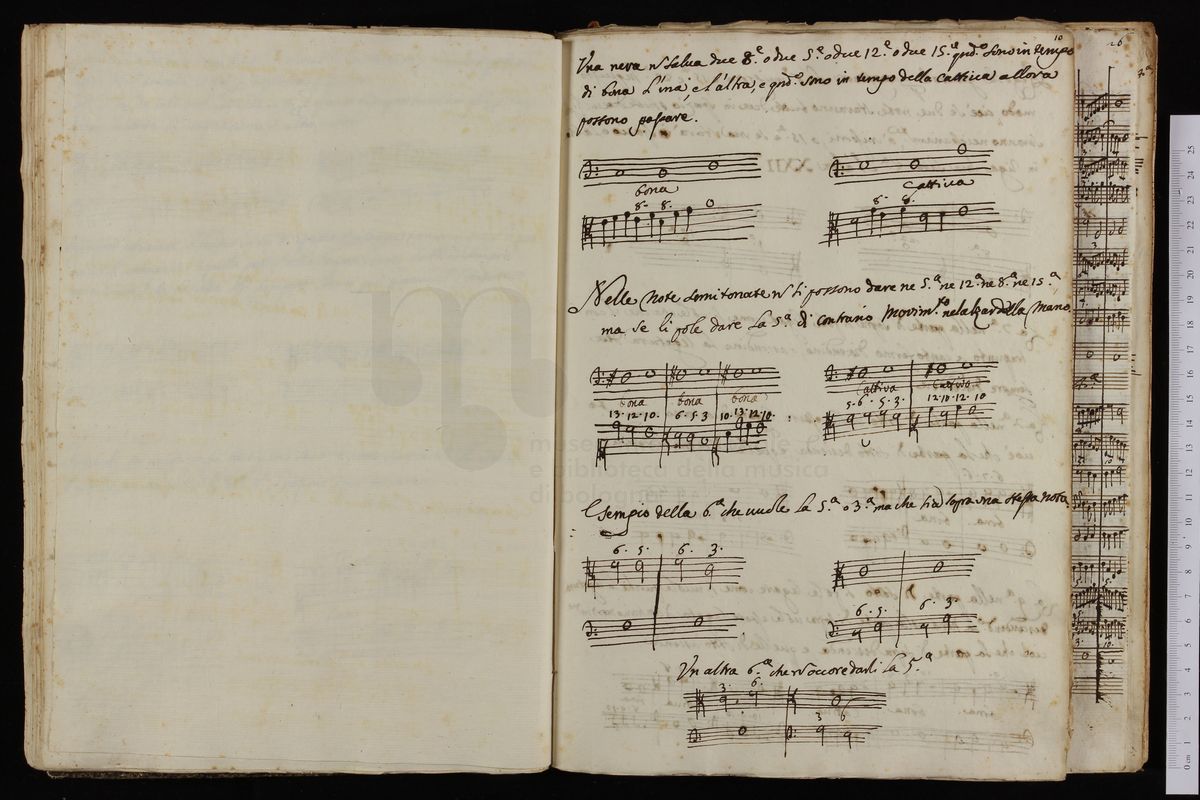 10
Una nera ñ salva due 8.e o due 5.e o due 12.e o due 15.e qnd.o sono in tempo
di bona l'una, e l'altra, e qnd.o sono in tempo della cattiva allora
possono passare.
bona
8. 8.
Cattiva
8. 8.
Nelle Note semitonate ñ si possono dare ne 5.a ne 12.a ne 8.a ne 15.a
ma se li pole dare la 5.a di contrario movim.to nel alzar della Mano
bona bona bona
13. 12. 10. 6. 5. 3 10. 13. 12. 10.
Cattiva Cattiva
5. 6. 5. 3. 12. 10. 12. 10
Esempio della 6.a che vuole la 5.a o 3.a ma che sia sopra una stessa nota
6. 5. 6. 3.
6. 5. 6. 3.
Un altra 6.a che ñ occore darli la 5.a
3. 6.
3 6
26
museo internazionale
e biblioteca della musica
di bologna
0 cm 1 2 3 4 5 6 7 8 9 10 11 12 13 14 15 16 17 18 19 20 21 22 23 24 25